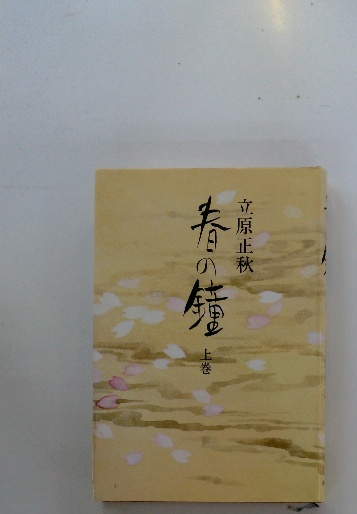 立原正秋
春の鐘
上巻